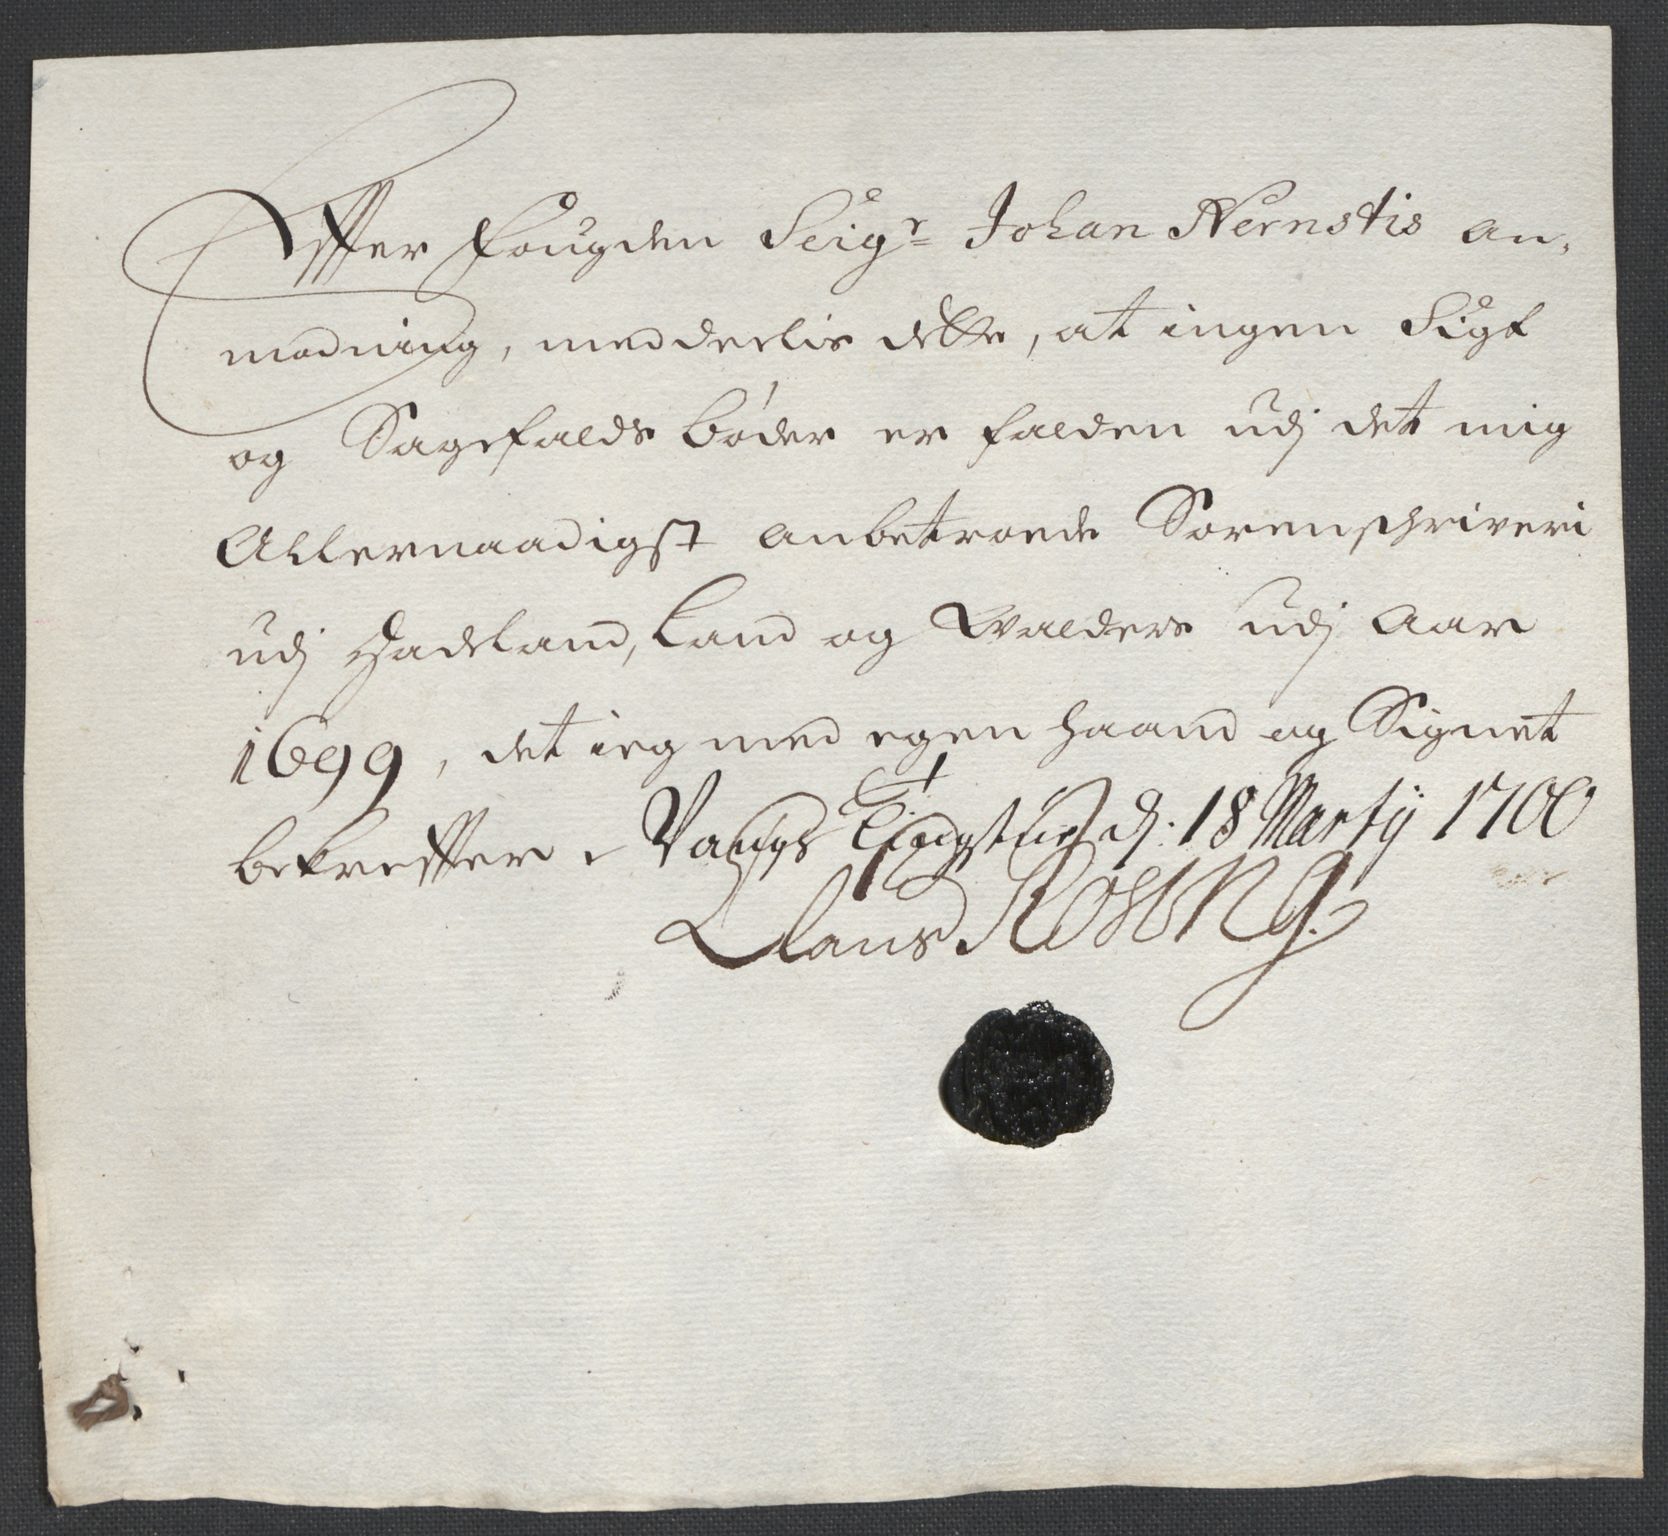 Effter Fougden Seigr Johan Nernstis an,
modning, meddeelis dette, at ingen Sigt
og Sagefalds bøder er falden udj det mig
Allernaadigst anbetroede Sorenschriveri
udj Hadeland, Land og Walders udj Aar
1699, det ieg med egen haand og Signet
bekreffter, Vangs Tingstue d. 18 Martij 1700
Claus Rosing.